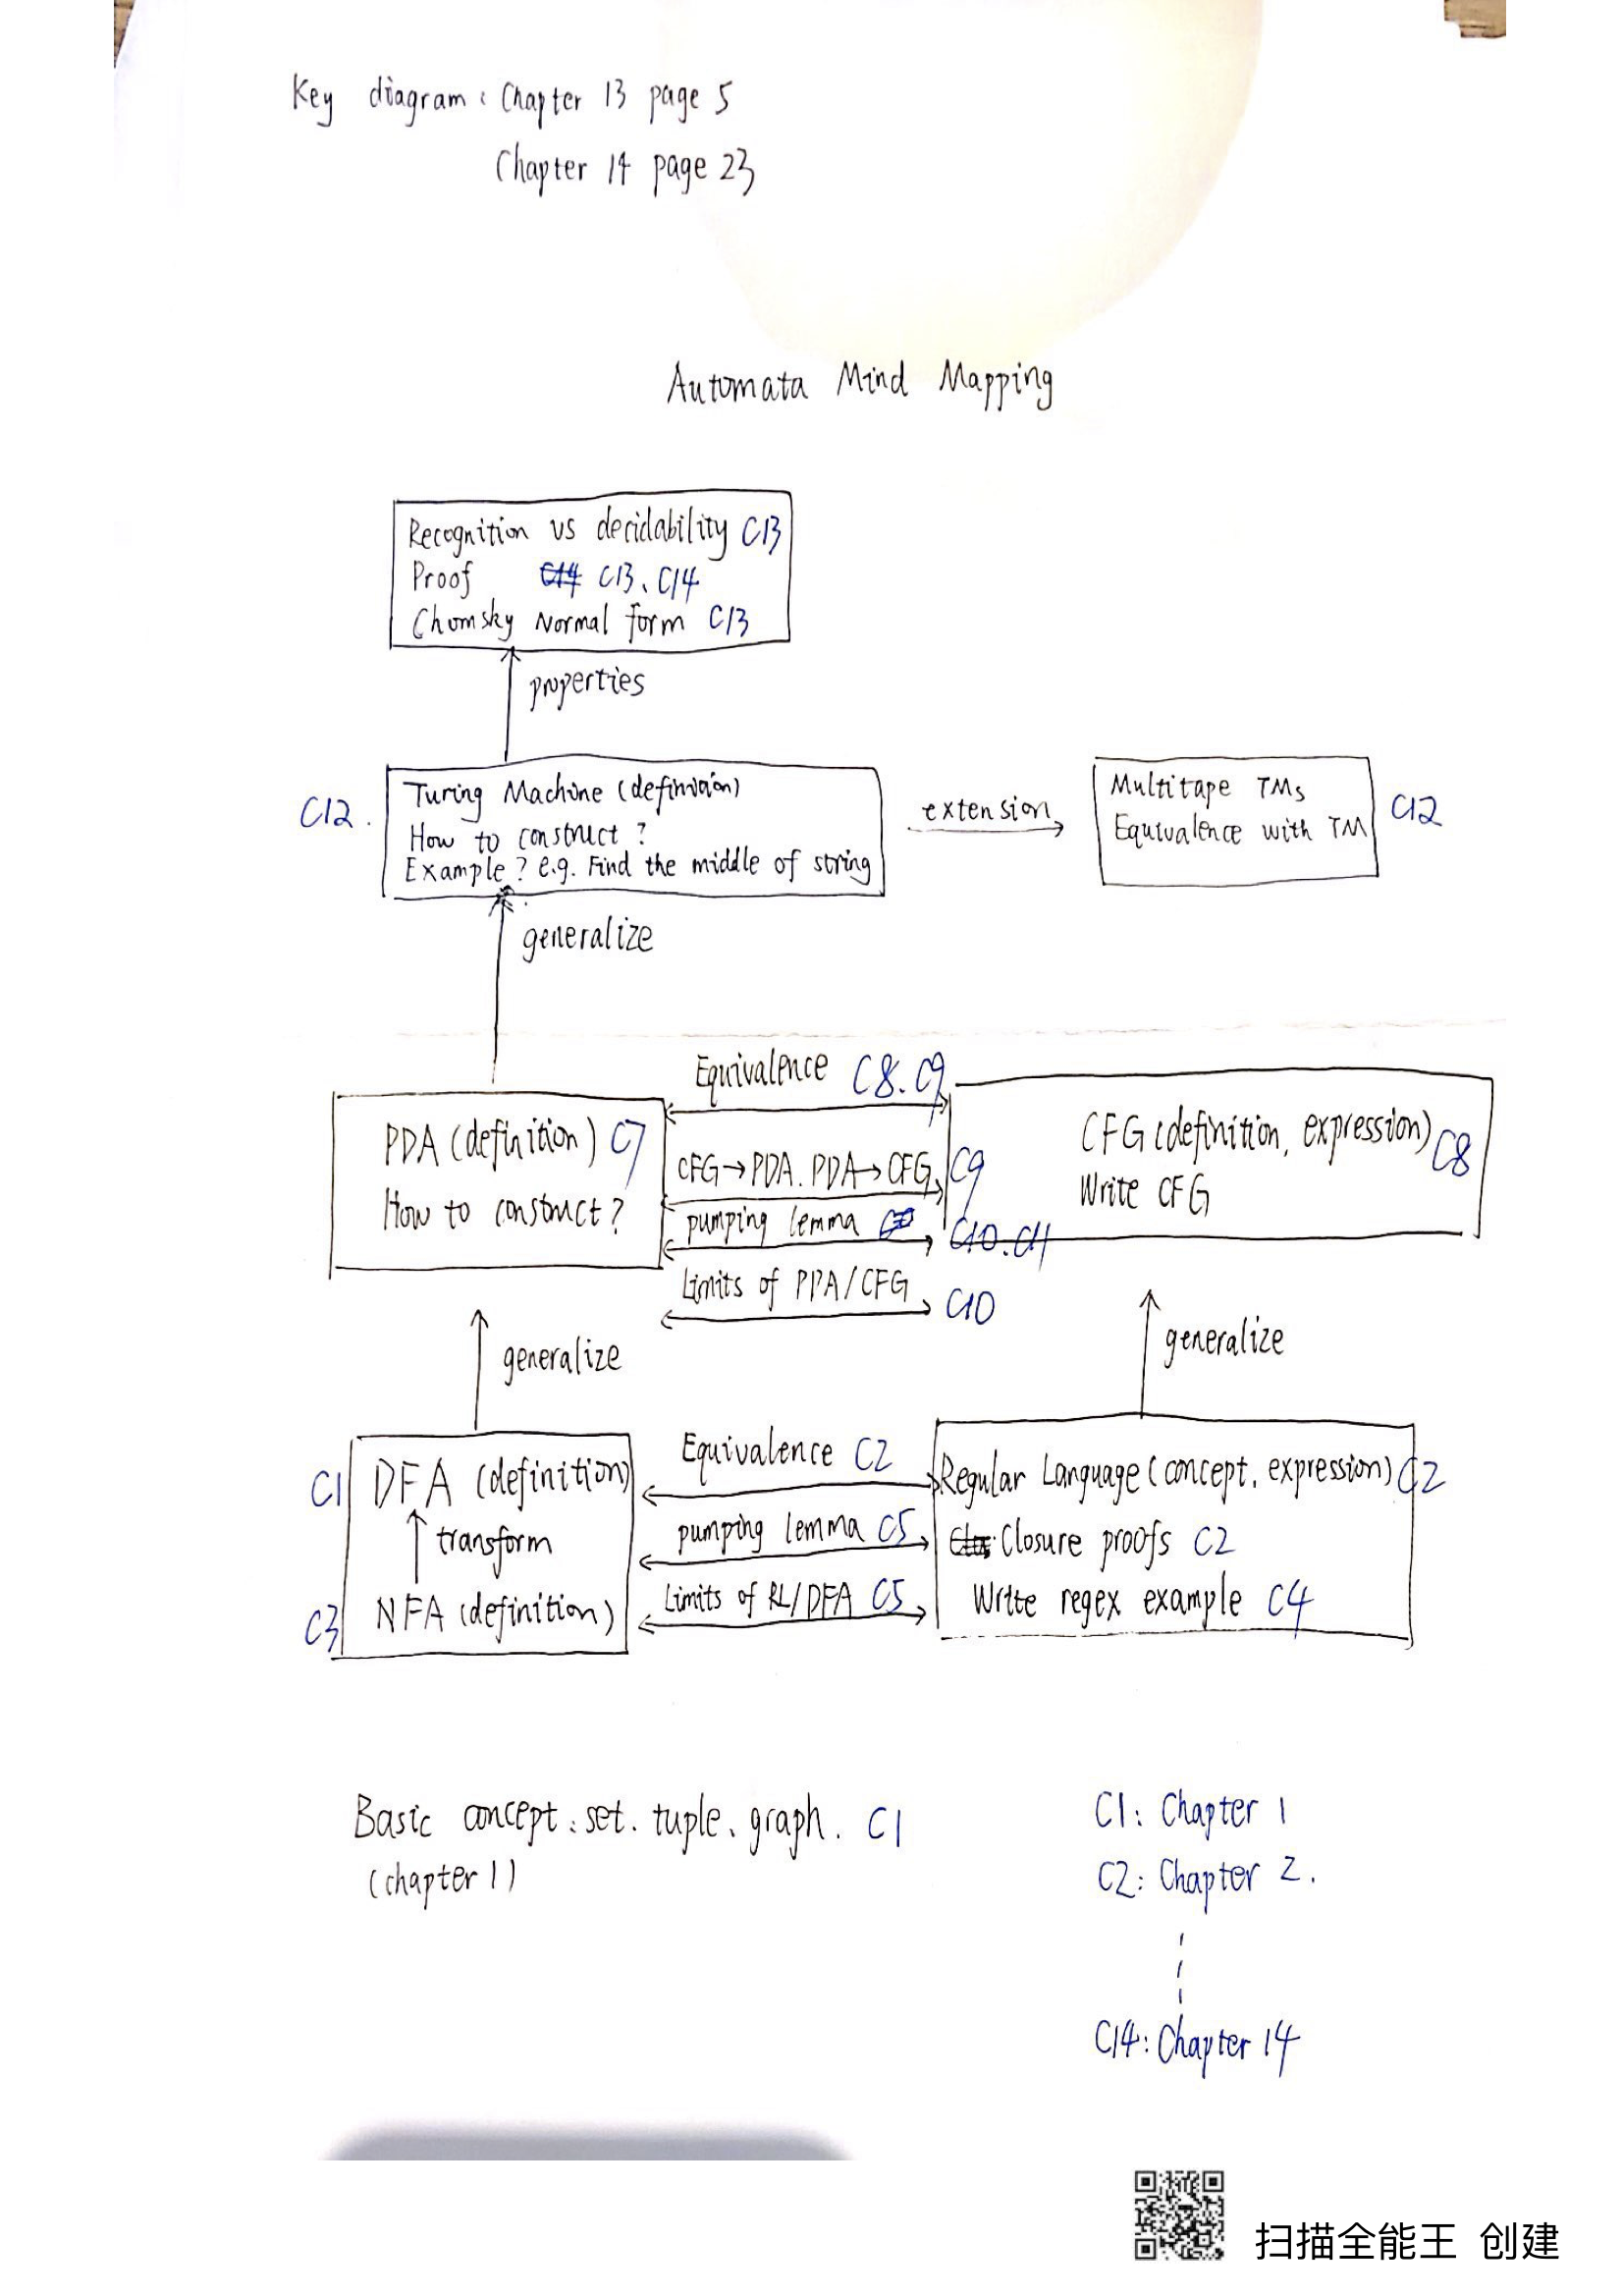 Key diagram: Chapter 13 page 5
Chapter 14 page 23
Automata Mind Mapping
Recognition vs decidability C13
Proof C14 C13、C14
Chomsky Normal form C13
properties
C12.
Turing Machine (definition)
How to construct ?
Example ? e.g. Find the middle of string
extension
Multitape TMs
Equivalence with TM
C12
generalize
Equivalence C8. C9
PDA (definition) C7
How to construct ?
CFG→PDA. PDA→CFG C9
pumping lemma C10. C11
Limits of PDA/CFG C10
CFG (definition, expression) C8
Write CFG
generalize
generalize
C1 DFA (definition)
transform
C3 NFA (definition)
Equivalence C2
pumping lemma C5
Limits of RL/DFA C5
Regular Language (concept, expression) C2
Closure proofs C2
Write regex example C4
Basic concept: set. tuple、graph. C1
(chapter 1)
C1: Chapter 1
C2: Chapter 2.
C14: Chapter 14
扫描全能王 创建